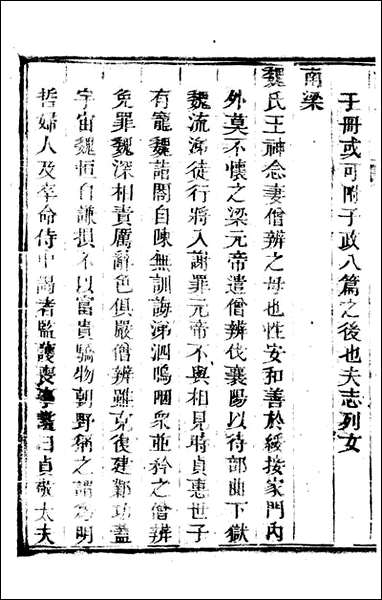 于冊或可附子政八篇之後也夫志列女
南梁
魏氏王神念妻僧辨之母也性安和善於綏接家門內
外莫不懷之梁元帝遣僧辨伐襄陽以待部曲下獄
魏流涕徒行將入謝罪元帝不與相見時貞惠世子
有寵魏詣閤自陳無訓誨涕泗嗚咽眾並矜之僧辨
免罪魏深相責厲辭色俱嚴僧辨雖克復建鄴功蓋
宇宙魏恒自謙損不以富貴驕物朝野稱之謂為明
哲婦人及卒命侍中謁者監護喪事諡曰貞敬太夫